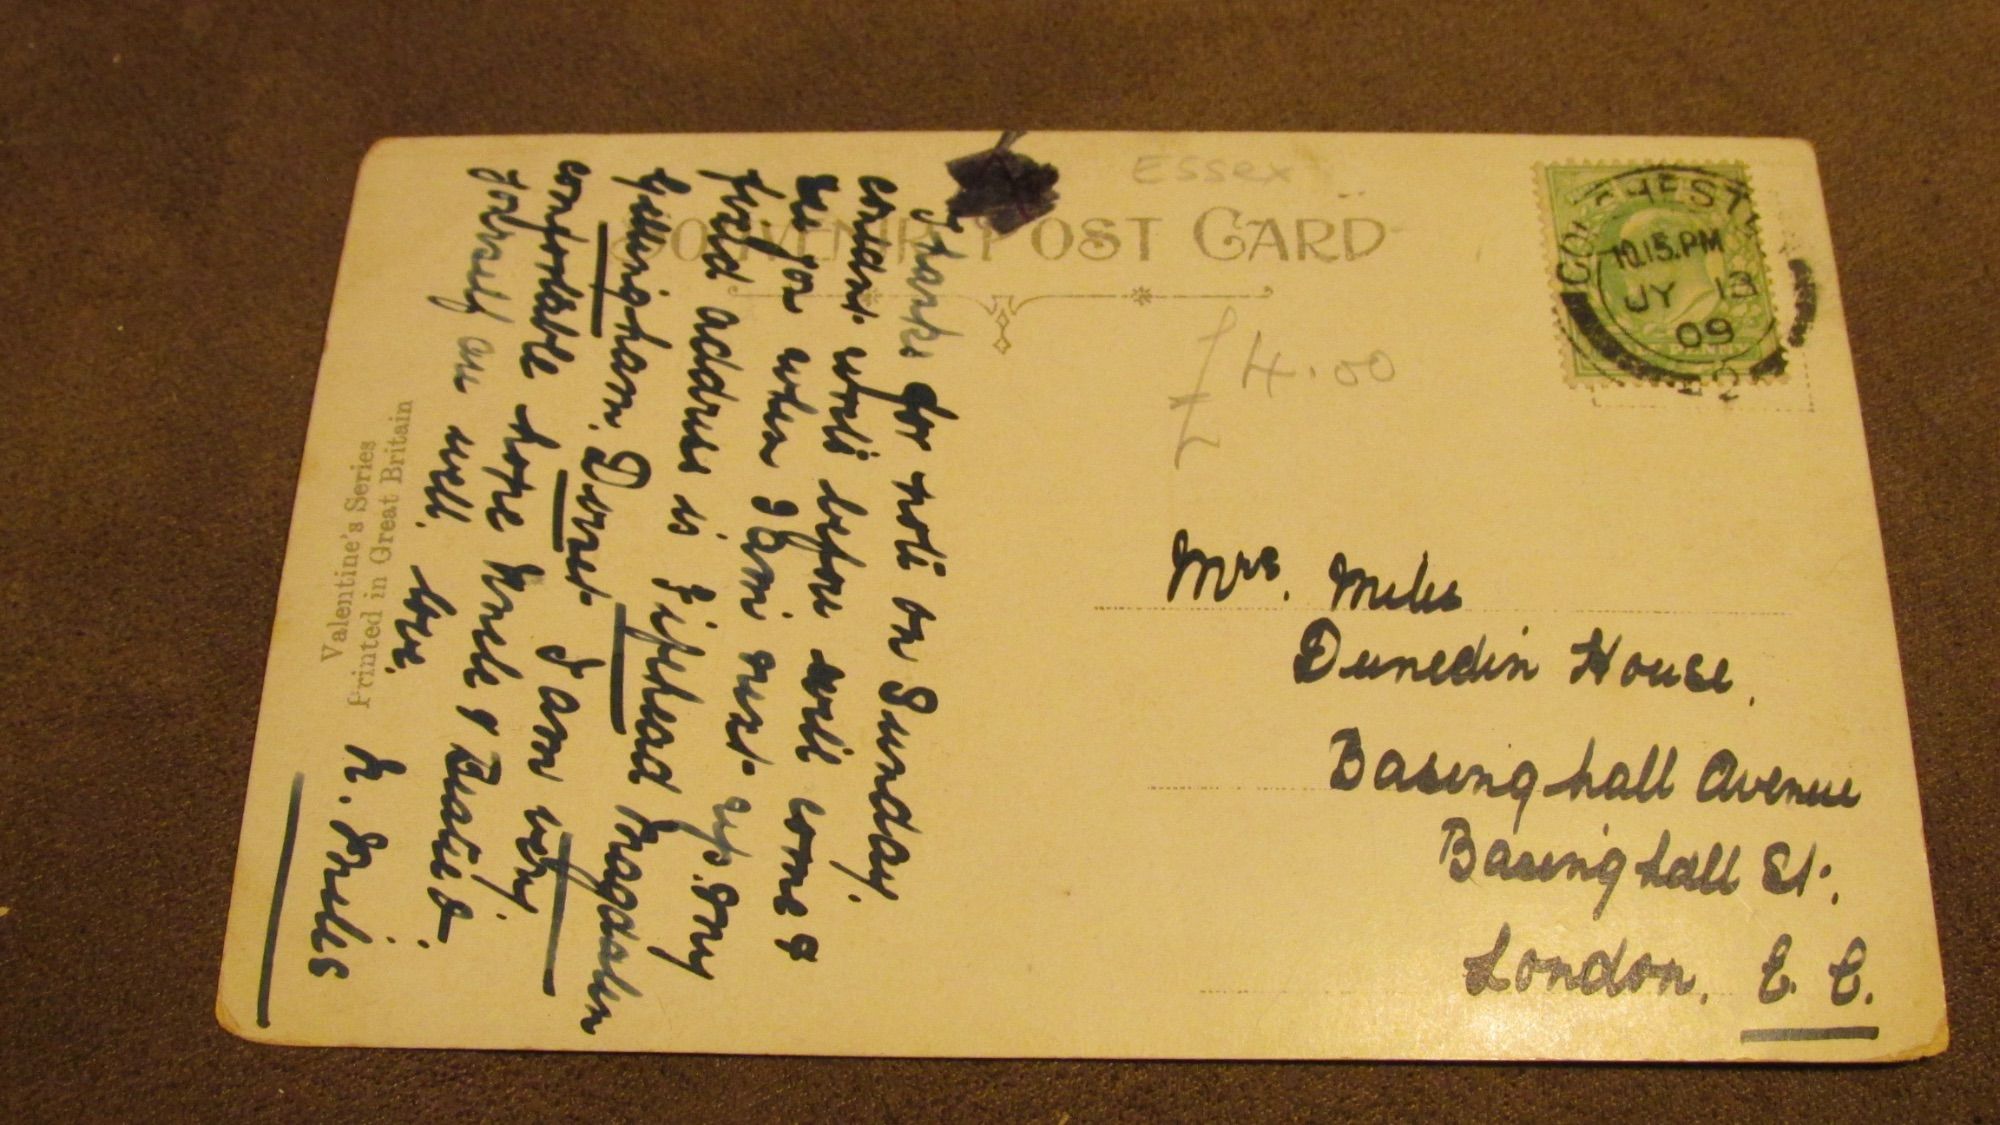 Essex
SOUVENIR POST CARD
£4.00
COLCHESTER
10.15.PM
JY 13
09
Valentine's Series
Printed in Great Britain
Thanks for note on Sunday.
cordn't write before will come &
see you when I am next up. Only
find address is Fifehead Magdalen
Gillingham. Dorset. I am very
comfortable hope Uncle & Bessie &
yourself are well. love.
Mrs. Miles
Dunedin House,
Basinghall Avenue
Basinghall St.
London. E. C.